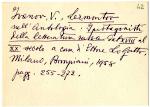 42
Ivanov, V. Lermontov
nell'Antologia. I protagonisti
della letteratura russa dal XVIII al
XX secolo a cura d'Ettore Lo Gatto.
Milano, Bompiani, 1958
pagg. 255-272.